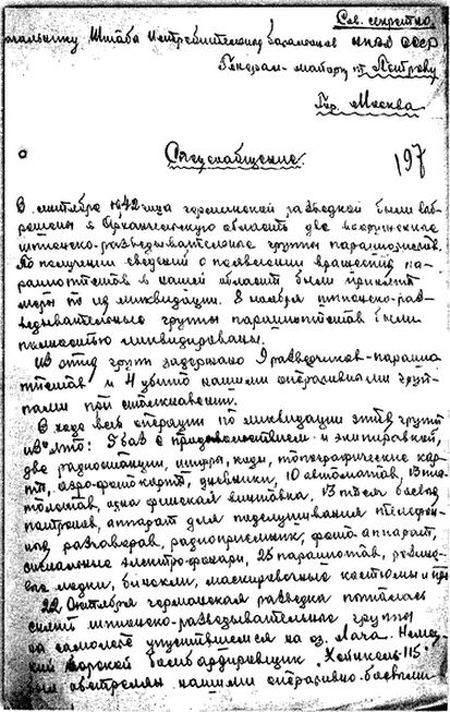 Сов. секретно
Начальнику Штаба Истребительных батальонов НКВД СССР
Генерал-майору т. Петрову
Гор. Москва
Спецсообщение.
197
В сентябре 1942 года германской разведкой были выб-
рошены в Архангельскую область две вооруженные
шпионско-разведывательные группы парашютистов.
По получении сведений о появлении вражеских па-
рашютистов в нашей области были приняты
меры по их ликвидации. 8 ноября шпионско-раз-
ведывательные группы парашютистов были
полностью ликвидированы.
Из этих групп задержано 9 разведчиков-парашю-
тистов и 4 убито нашими оперативными груп-
пами при столкновении.
В ходе всей операции по ликвидации этих групп
изъято: баз с продовольствием и экипировкой,
две радиостанции, шифры, коды, топографические кар-
ты, аэро-фотокарты, дневники, 10 автоматов, 13 пис-
толетов, одна финская винтовка, 13 тысяч боевых
патронов, аппарат для подслушивания телефон-
ных разговоров, радиоприемник, фотоаппарат,
специальные электро-фонари, 25 парашютов, резино-
вые лодки, бинокли, маскировочные костюмы и пр.
22 Октября германская разведка пыталась
снять шпионско-разведывательные группы
на самолете опустившемся на оз. Лача. Немец-
кий морской бомбардировщик "Хейнкель-115"
был обстрелян нашими оперативно-боевыми